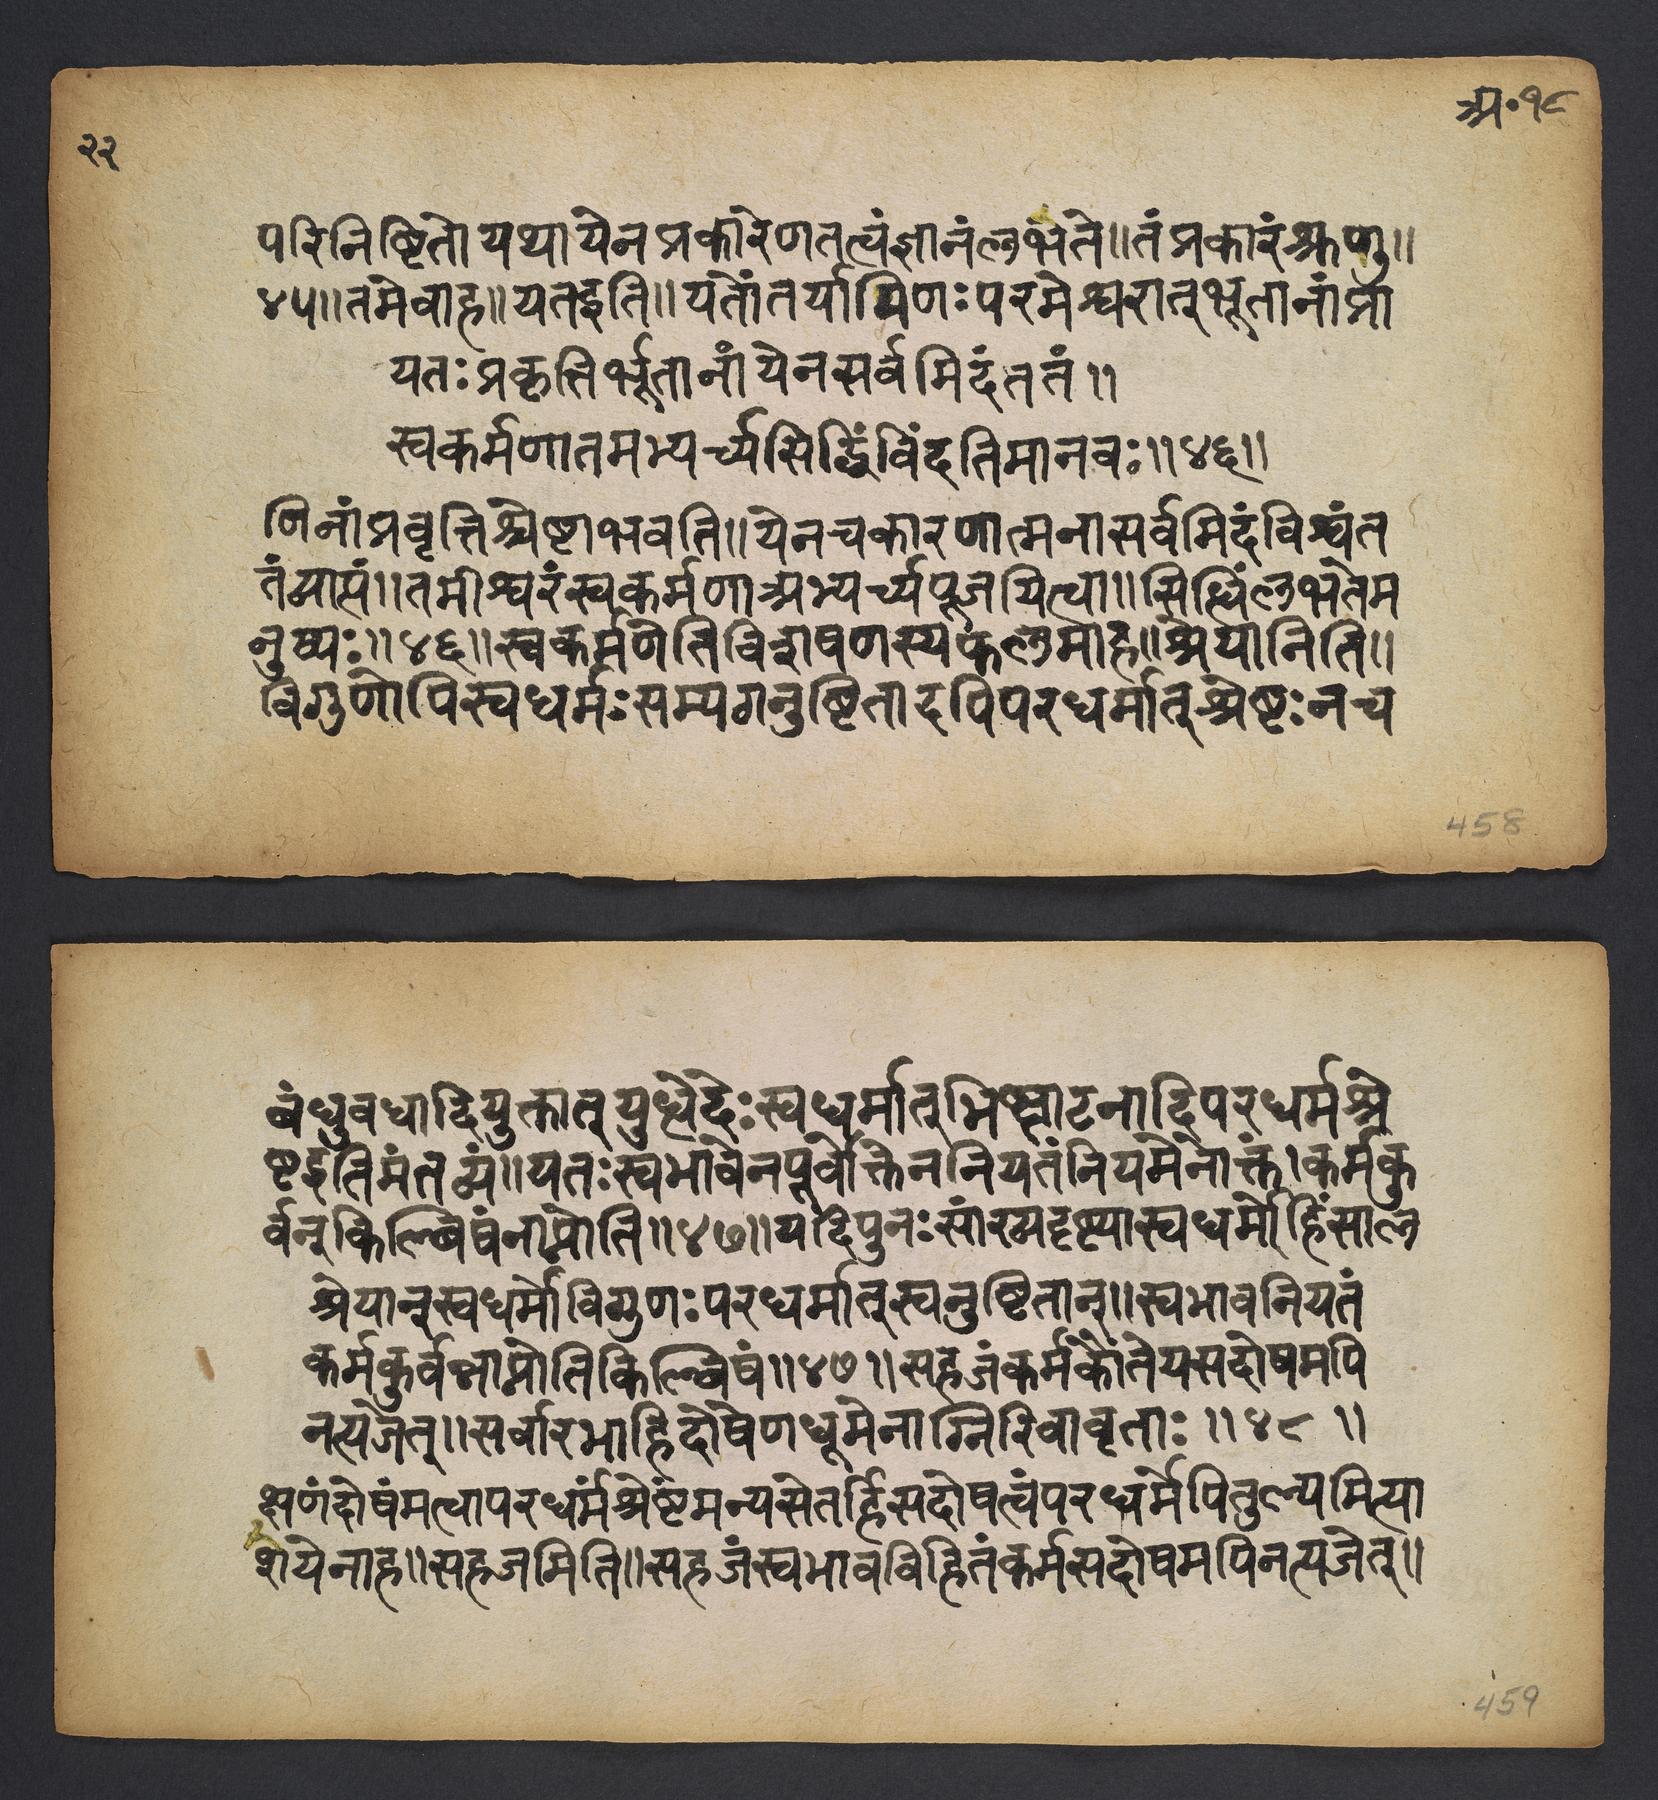 अ॰१८
२२
परिनिष्टितो यथा येन प्रकारेण तत्वं ज्ञानं लभते॥ तं प्रकारं शृणु॥
४५॥ तमेवाह॥ यत इति॥ यतोंतर्यामिणः परमेश्वरात् भूतानां प्रा
यतः प्रकृत्तिर्भूतानां येन सर्वमिदं ततं॥
स्वकर्मणा तमभ्यर्च्य सिद्धिं विंदति मानवः॥४६॥
णिनां प्रवृत्तिश्चेष्टा भवति॥ येन च कारणात्मना सर्वमिदं विश्वं त
तं व्याप्तं॥ तमीश्वरं स्वकर्मणा अभ्यर्च्य पूजयित्वा॥ सिद्धिं लभते म
नुष्यः॥४६॥ स्वकर्मणेति विशेषणस्य फलमाह॥ श्रेयानिति॥
विगुणोपि स्वधर्मः सम्यगनुष्टितादपि परधर्मात् श्रेष्टः न च
458
बंधुवधादियुक्तात् युध्देदेः स्वधर्मात् भिक्षाटनादिपरधर्म श्रे
ष्ट इति मंतव्यं॥ यतः स्वभावेन पूर्वोक्तेन नियतं नियमेनोक्तं। कर्म कु
र्वन् किल्बिषं नाप्नोति॥४७॥ यदि पुनः सांख्यदृष्ट्या स्वधर्मे हिंसाल
श्रेयान्स्वधर्मो विगुणः परधर्मात् स्वनुष्टितान्॥ स्वभावनियतं
कर्म कुर्वन्नाप्नोति किल्बिषं॥४७॥ सहजं कर्म कौंतेय सदोषमपि
न त्यजेत्॥ सर्वारभा हि दोषेण धूमेनाग्निरिवावृताः॥४८॥
क्षणं दोषं मत्वा परधर्मं श्रेष्टं मन्यसे तर्हि सदोषत्वं परधर्मेपि तुल्यमित्या
शयेनाह॥ सहजमिति॥ सहजं स्वभावविहितं कर्म सदोषमपि न त्यजेत्॥
459